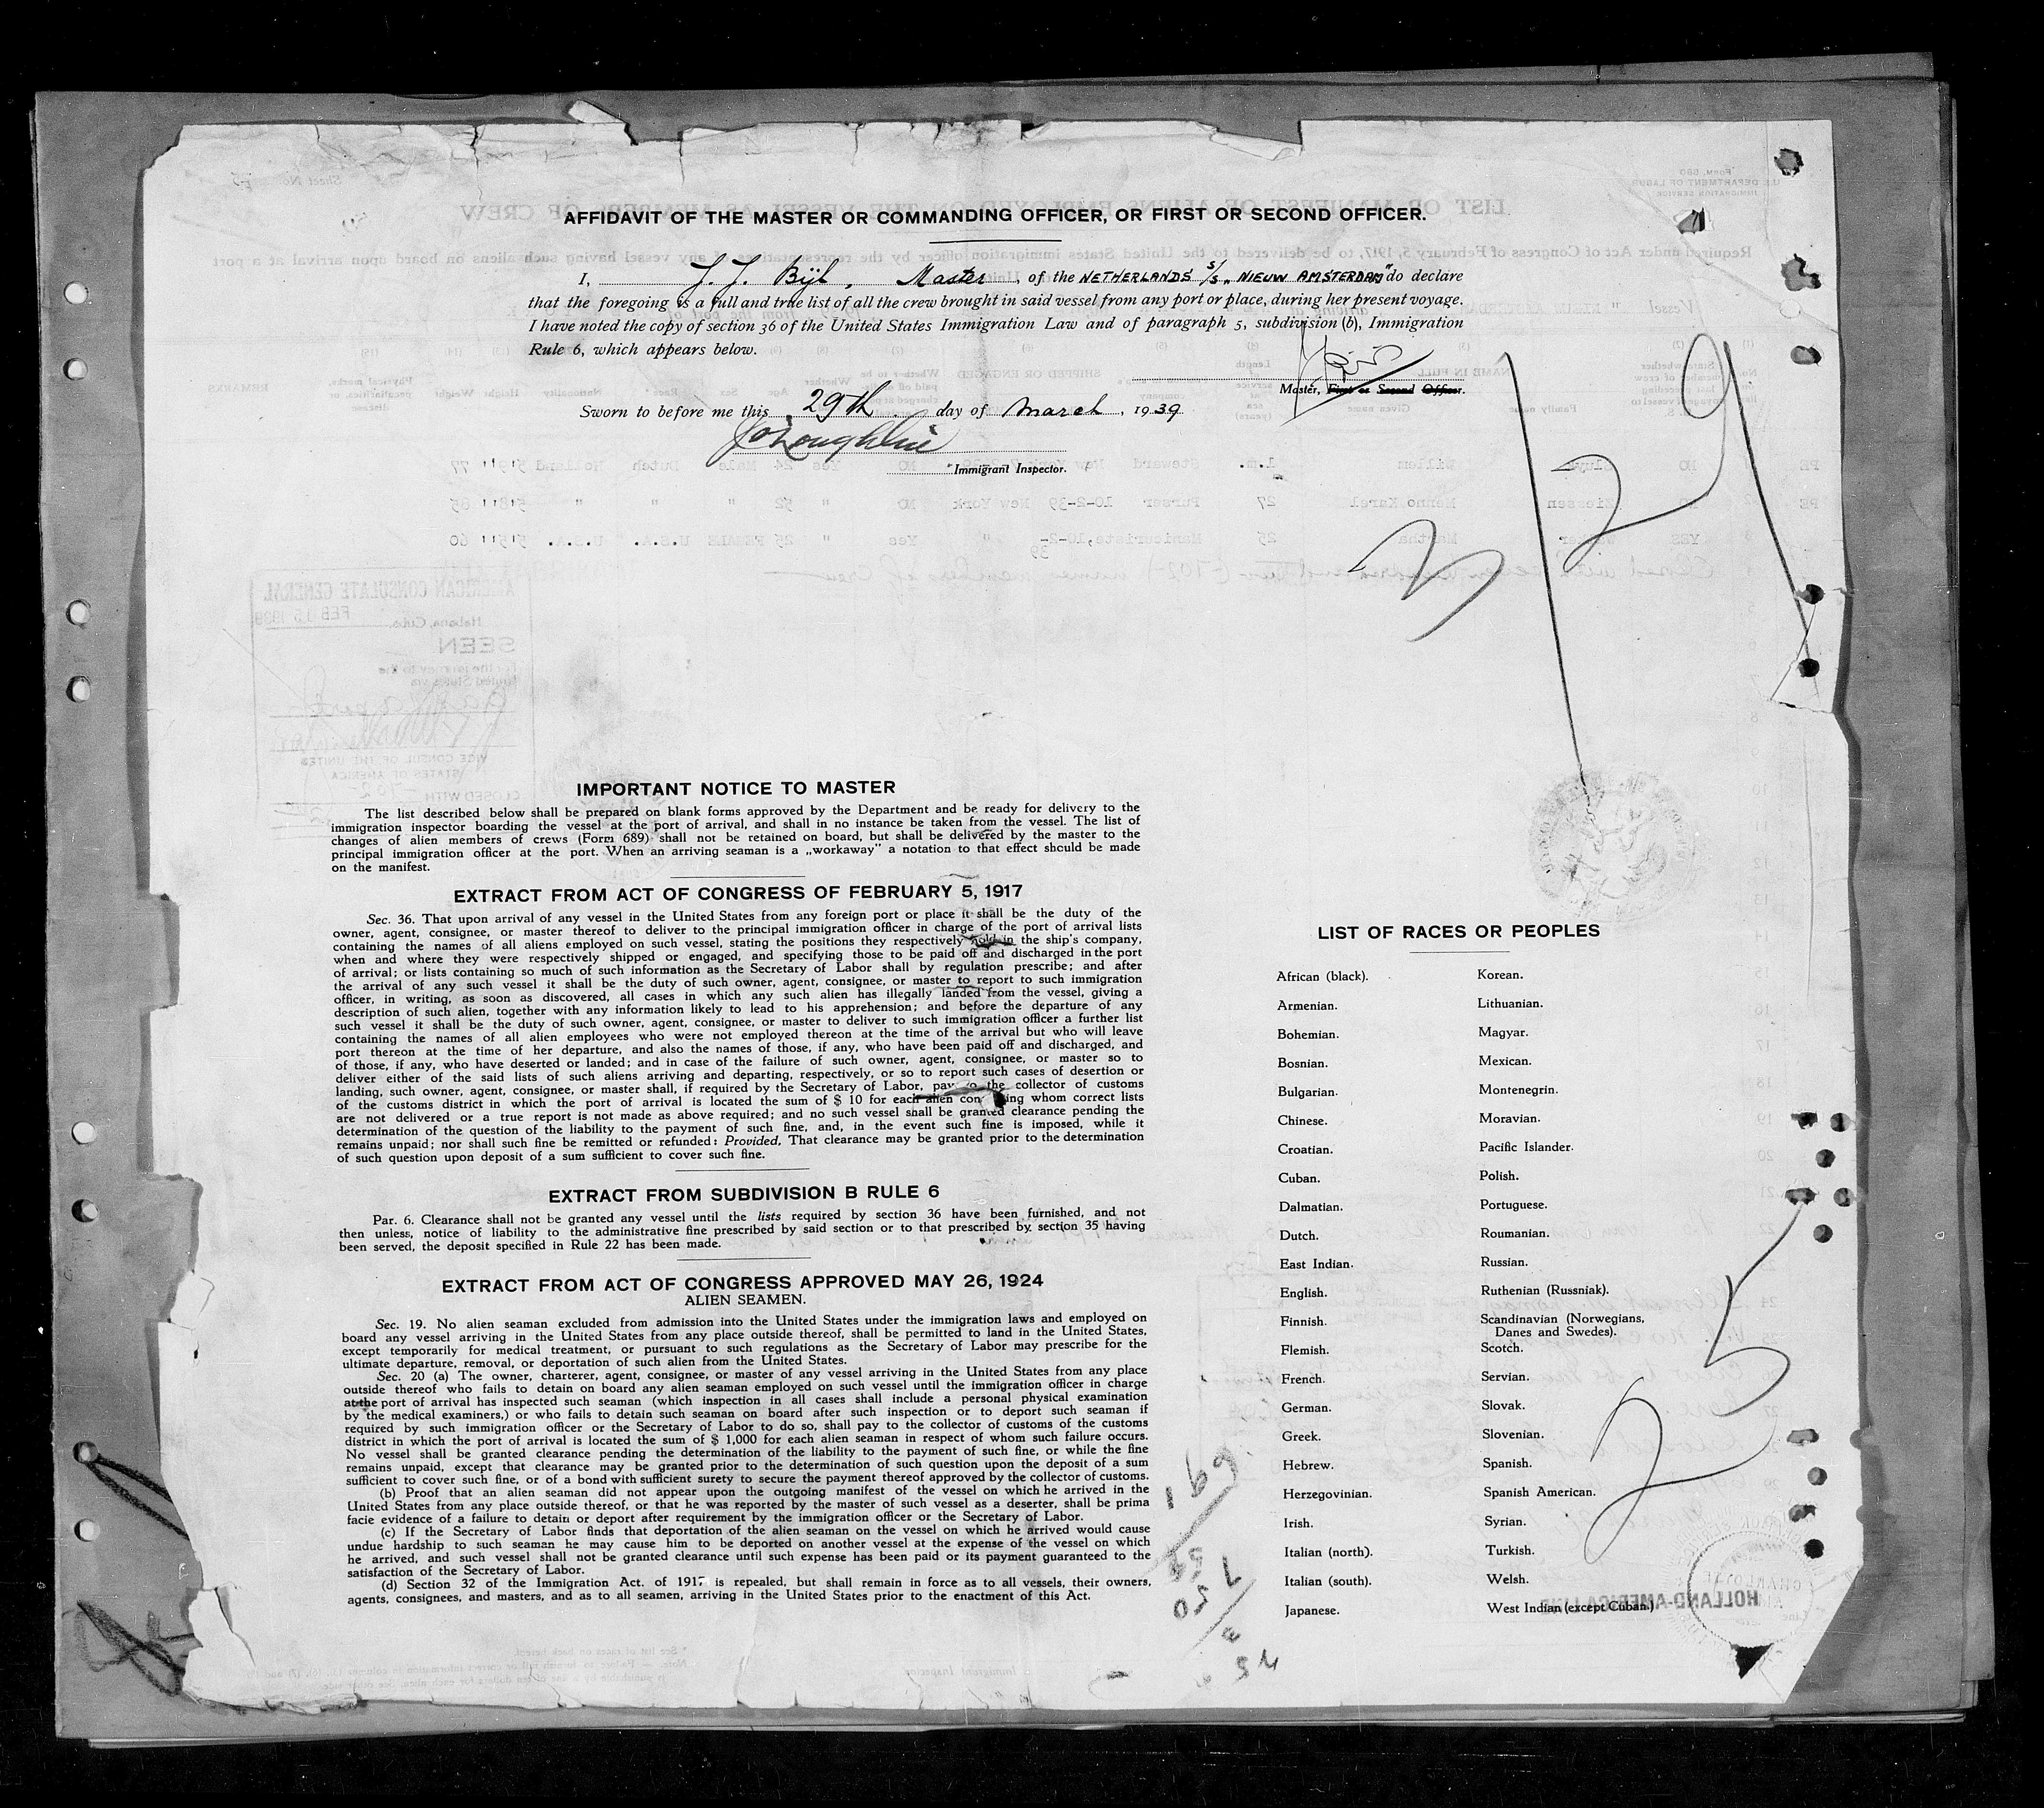 AFFIDAVIT OF THE MASTER OR COMMANDING OFFICER, OR FIRST OR SECOND OFFICER.
I, J. J. Bijl, Master, of the NETHERLANDS S/S. „NIEUW AMSTERDAM" do declare
that the foregoing is a full and true list of all the crew brought in said vessel from any port or place, during her present voyage.
I have noted the copy of section 36 of the United States Immigration Law and of paragraph 5, subdivision (b), Immigration
Rule 6, which appears below.
Master, First or Second Officer.
Sworn to before me this 29th day of March, 1939
Immigrant Inspector.
3/29
IMPORTANT NOTICE TO MASTER
The list described below shall be prepared on blank forms approved by the Department and be ready for delivery to the
immigration inspector boarding the vessel at the port of arrival, and shall in no instance be taken from the vessel. The list of
changes of alien members of crews (Form 689) shall not be retained on board, but shall be delivered by the master to the
principal immigration officer at the port. When an arriving seaman is a „workaway" a notation to that effect should be made
on the manifest.
EXTRACT FROM ACT OF CONGRESS OF FEBRUARY 5, 1917
Sec. 36. That upon arrival of any vessel in the United States from any foreign port or place it shall be the duty of the
owner, agent, consignee, or master thereof to deliver to the principal immigration officer in charge of the port of arrival lists
containing the names of all aliens employed on such vessel, stating the positions they respectively hold in the ship's company,
when and where they were respectively shipped or engaged, and specifying those to be paid off and discharged in the port
of arrival; or lists containing so much of such information as the Secretary of Labor shall by regulation prescribe; and after
the arrival of any such vessel it shall be the duty of such owner, agent, consignee, or master to report to such immigration
officer, in writing, as soon as discovered, all cases in which any such alien has illegally landed from the vessel, giving a
description of such alien, together with any information likely to lead to his apprehension; and before the departure of any
such vessel it shall be the duty of such owner, agent, consignee, or master to deliver to such immigration officer a further list
containing the names of all alien employees who were not employed thereon at the time of the arrival but who will leave
port thereon at the time of her departure, and also the names of those, if any, who have been paid off and discharged, and
of those, if any, who have deserted or landed; and in case of the failure of such owner, agent, consignee, or master so to
deliver either of the said lists of such aliens arriving and departing, respectively, or so to report such cases of desertion or
landing, such owner, agent, consignee, or master shall, if required by the Secretary of Labor, pay to the collector of customs
of the customs district in which the port of arrival is located the sum of $ 10 for each alien con ing whom correct lists
are not delivered or a true report is not made as above required; and no such vessel shall be granted clearance pending the
determination of the question of the liability to the payment of such fine, and, in the event such fine is imposed, while it
remains unpaid; nor shall such fine be remitted or refunded: Provided, That clearance may be granted prior to the determination
of such question upon deposit of a sum sufficient to cover such fine.
EXTRACT FROM SUBDIVISION B RULE 6
Par. 6. Clearance shall not be granted any vessel until the lists required by section 36 have been furnished, and not
then unless, notice of liability to the administrative fine prescribed by said section or to that prescribed by section 35 having
been served, the deposit specified in Rule 22 has been made.
EXTRACT FROM ACT OF CONGRESS APPROVED MAY 26, 1924
ALIEN SEAMEN.
Sec. 19. No alien seaman excluded from admission into the United States under the immigration laws and employed on
board any vessel arriving in the United States from any place outside thereof, shall be permitted to land in the United States,
except temporarily for medical treatment, or pursuant to such regulations as the Secretary of Labor may prescribe for the
ultimate departure, removal, or deportation of such alien from the United States.
Sec. 20 (a) The owner, charterer, agent, consignee, or master of any vessel arriving in the United States from any place
outside thereof who fails to detain on board any alien seaman employed on such vessel until the immigration officer in charge
at the port of arrival has inspected such seaman (which inspection in all cases shall include a personal physical examination
by the medical examiners,) or who fails to detain such seaman on board after such inspection or to deport such seaman if
required by such immigration officer or the Secretary of Labor to do so, shall pay to the collector of customs of the customs
district in which the port of arrival is located the sum of $ 1,000 for each alien seaman in respect of whom such failure occurs.
No vessel shall be granted clearance pending the determination of the liability to the payment of such fine, or while the fine
remains unpaid, except that clearance may be granted prior to the determination of such question upon the deposit of a sum
sufficient to cover such fine, or of a bond with sufficient surety to secure the payment thereof approved by the collector of customs.
(b) Proof that an alien seaman did not appear upon the outgoing manifest of the vessel on which he arrived in the
United States from any place outside thereof, or that he was reported by the master of such vessel as a deserter, shall be prima
facie evidence of a failure to detain or deport after requirement by the immigration officer or the Secretary of Labor.
(c) If the Secretary of Labor finds that deportation of the alien seaman on the vessel on which he arrived would cause
undue hardship to such seaman he may cause him to be deported on another vessel at the expense of the vessel on which
he arrived, and such vessel shall not be granted clearance until such expense has been paid or its payment guaranteed to the
satisfaction of the Secretary of Labor.
(d) Section 32 of the Immigration Act. of 1917 is repealed, but shall remain in force as to all vessels, their owners,
agents, consignees, and masters, and as to all seamen, arriving in the United States prior to the enactment of this Act.
LIST OF RACES OR PEOPLES
African (black).
Armenian.
Bohemian.
Bosnian.
Bulgarian.
Chinese.
Croatian.
Cuban.
Dalmatian.
Dutch.
East Indian.
English.
Finnish.
Flemish.
French.
German.
Greek.
Hebrew.
Herzegovinian.
Irish.
Italian (north).
Italian (south).
Japanese.
Korean.
Lithuanian.
Magyar.
Mexican.
Montenegrin.
Moravian.
Pacific Islander.
Polish.
Portuguese.
Roumanian.
Russian.
Ruthenian (Russniak).
Scandinavian (Norwegians,
Danes and Swedes).
Scotch.
Servian.
Slovak.
Slovenian.
Spanish.
Spanish American.
Syrian.
Turkish.
Welsh.
West Indian (except Cuban.)
25
HOLLAND-AMERICA LINE